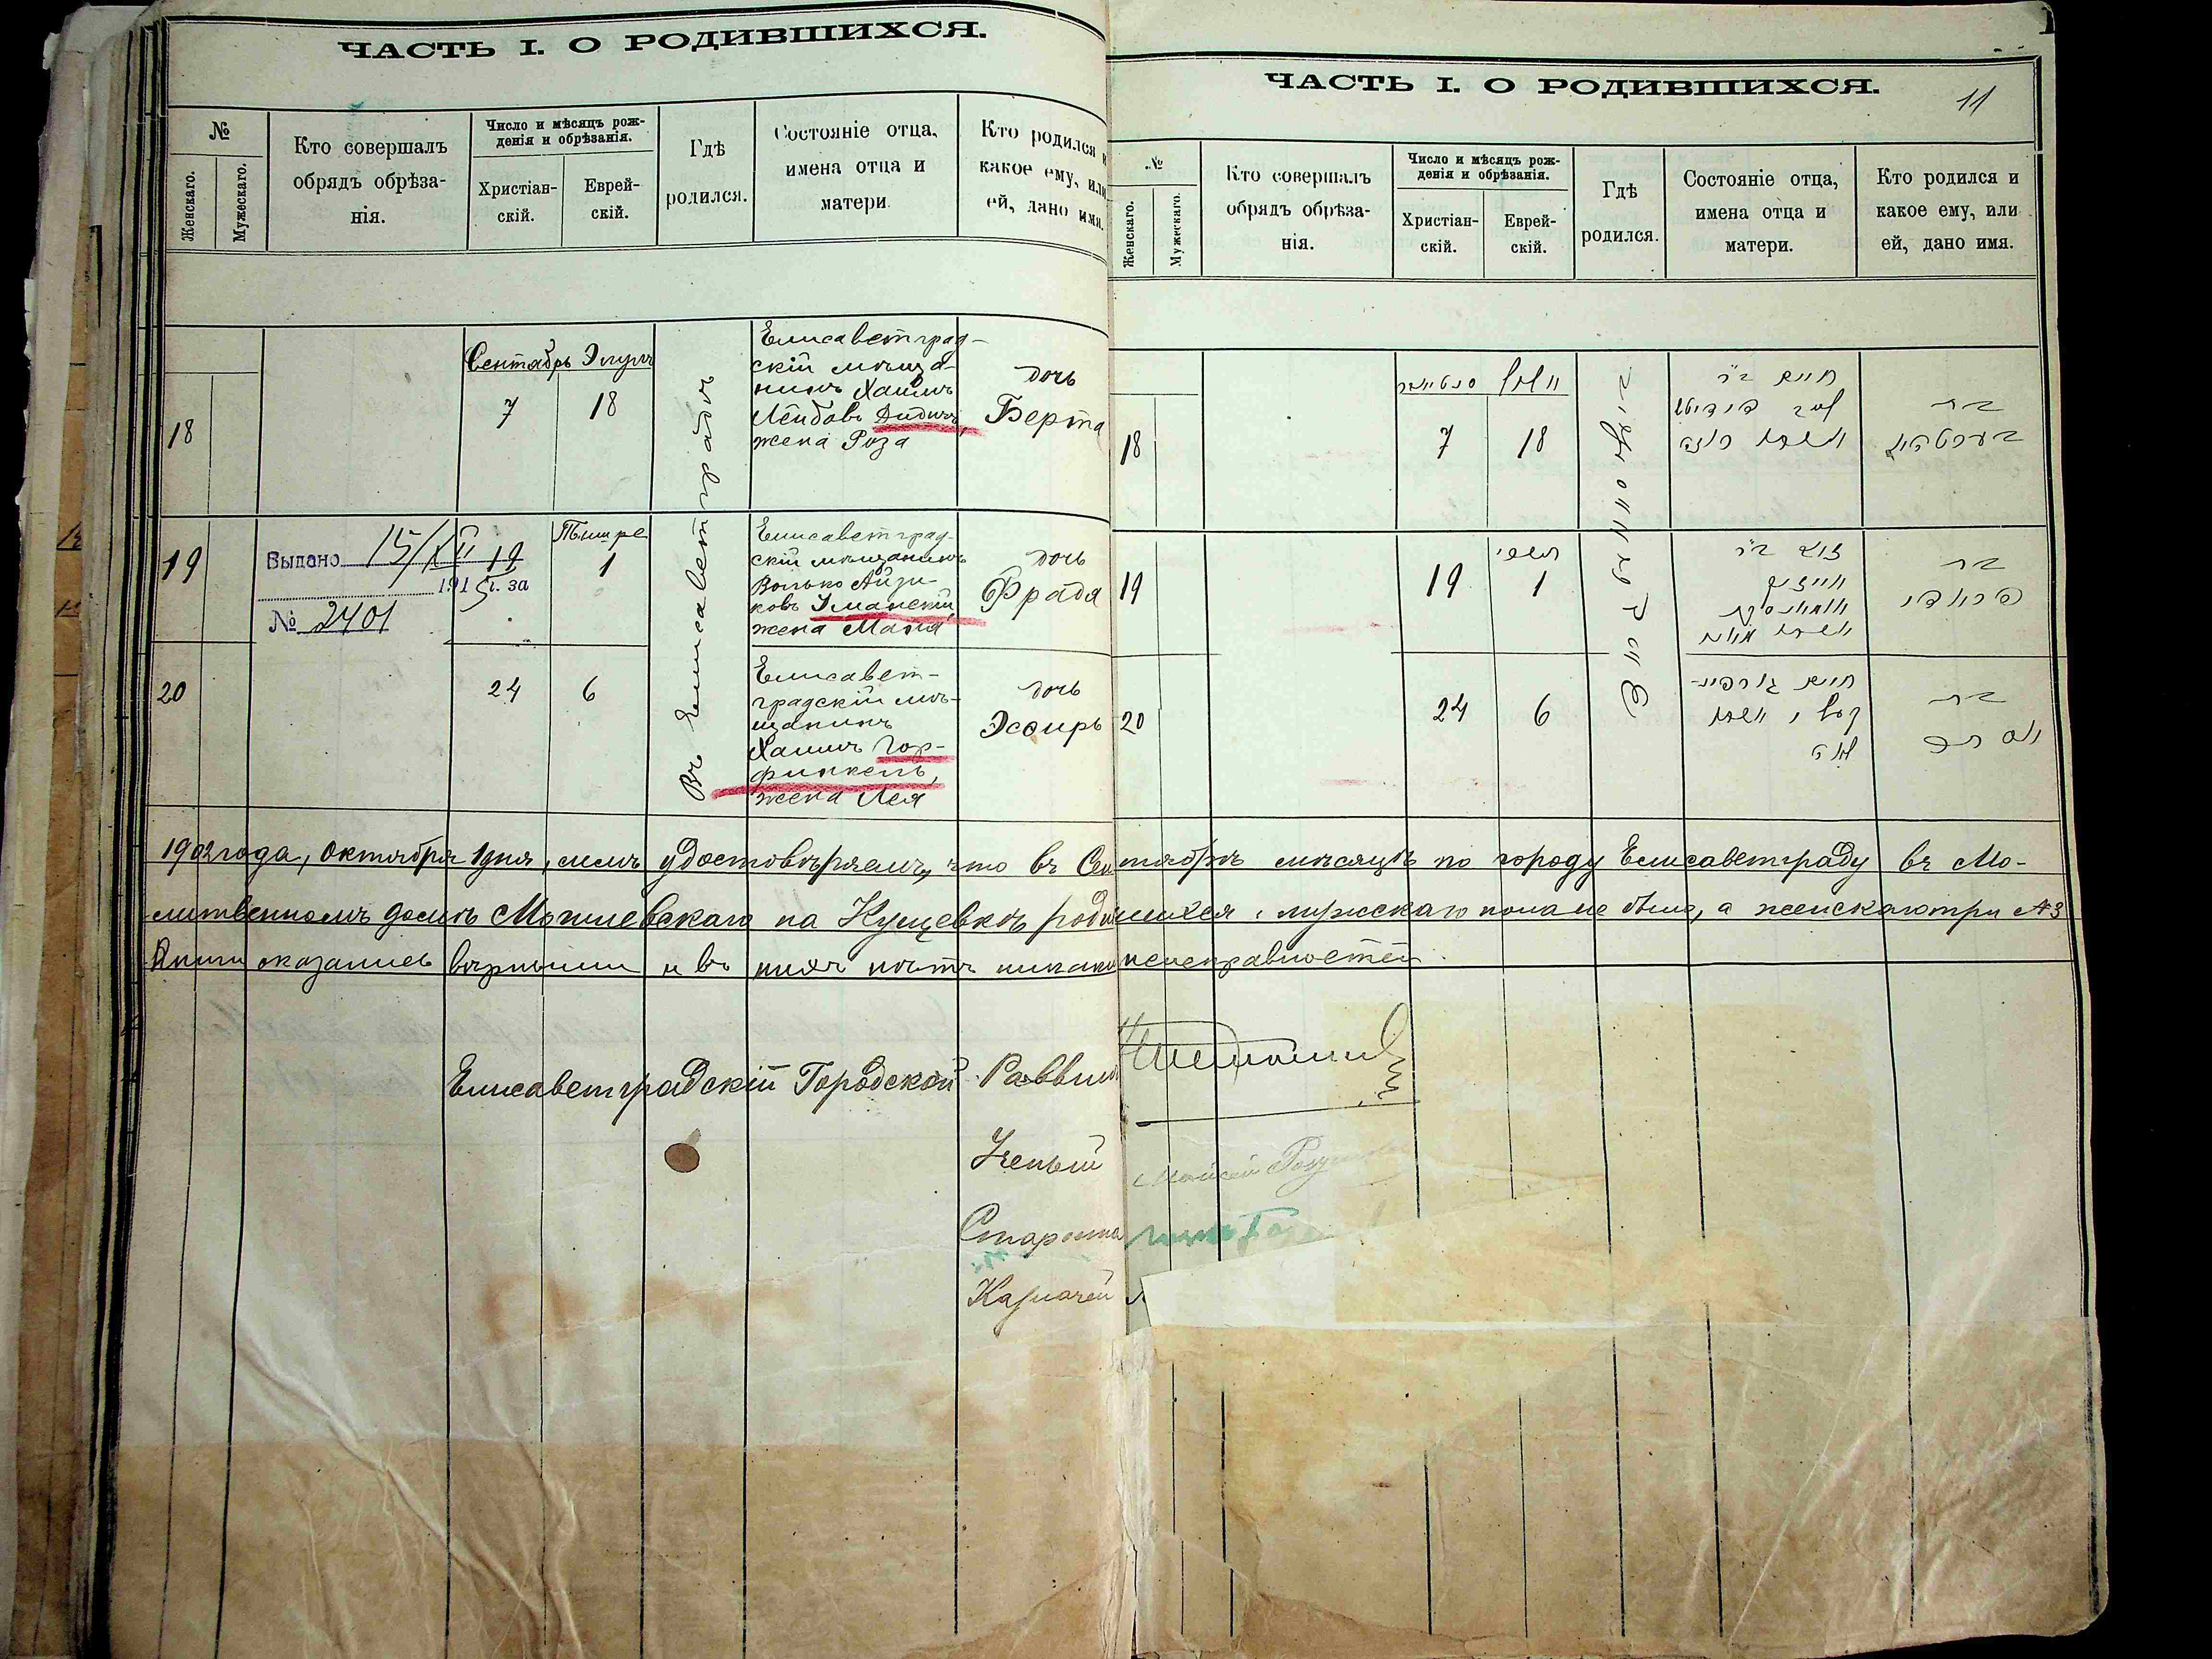 ЧАСТЬ I. О РОДИВШИХСЯ.
№
Женскаго.
Мужескаго.
Кто совершалъ
обрядъ обрѣза-
нія.
Число и мѣсяцъ рож-
денія и обрѣзанія.
Христіан-
скій.
Еврей-
скій.
Гдѣ
родился.
Состояніе отца,
имена отца и
матери.
Кто родился и
какое ему, или
ей, дано имя.
18
Сентябрь Элулъ
7
18
Въ Елисаветградѣ
Елисаветград-
скій мѣща-
нинъ Хаимъ
Лейбовъ
жена Роза
дочь
Берта
19
Выдано 15/XII 19
1915 г. за
№ 2401
Тишре
1
Елисаветград-
скій мѣщанинъ
Волько Айзи-
ковъ Уманскій,
жена Маня
дочь
Фрадя
20
24
6
Елисавет-
градскій мѣ-
щанинъ
Хаимъ Гор-
финкель,
жена Лея
дочь
Эсѳирь
ЧАСТЬ I. О РОДИВШИХСЯ.
11
№
Женскаго.
Мужескаго.
Кто совершалъ
обрядъ обрѣза-
нія.
Число и мѣсяцъ рож-
денія и обрѣзанія.
Христіан-
скій.
Еврей-
скій.
Гдѣ
родился.
Состояніе отца,
имена отца и
матери.
Кто родился и
какое ему, или
ей, дано имя.
18
אלול
7
18
חיים ב״ר
ואשתו ראזא
בת
19
תשרי
19
1
בת
20
24
6
ואשתו
לאה
בת
אסתר
1902 года, Октября 1 дня, симъ удостовѣряемъ, что въ Сентябрѣ мѣсяцѣ по городу Елисаветграду въ Мо-
литвенномъ домѣ Могилевскаго на Кущевкѣ родившихся: мужскаго пола не было, а женскаго три №3
Книги оказались вѣрными и въ нихъ нѣтъ никакихъ неисправностей.
Елисаветградскій Городской Раввинъ
Ученый Мойсей
Староста
Казначей